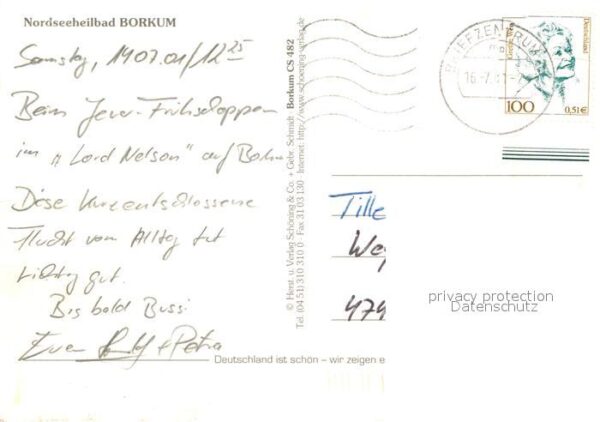 Nordseeheilbad BORKUM
Samstag, 1407.01/12 25
Beim Jever-Frühschoppen
im „Lord Nelson" auf
Diese Kurzentschlossene
Flucht vom Alltag tut
richtig gut.
Bis bald Bussi
Euer + Petra
© Herst. u. Verlag Schöning & Co. + Gebr. Schmidt Borkum CS 482
Tel. (04 51) 310 310 0 · Fax 31 03 130 · Internet: http://www.schoening-verlag.de
BRIEFZENTRUM
16.-7.
Deutschland
100
0,51€
Tille
We
479
privacy protection
Datenschutz
Deutschland ist schön – wir zeigen e